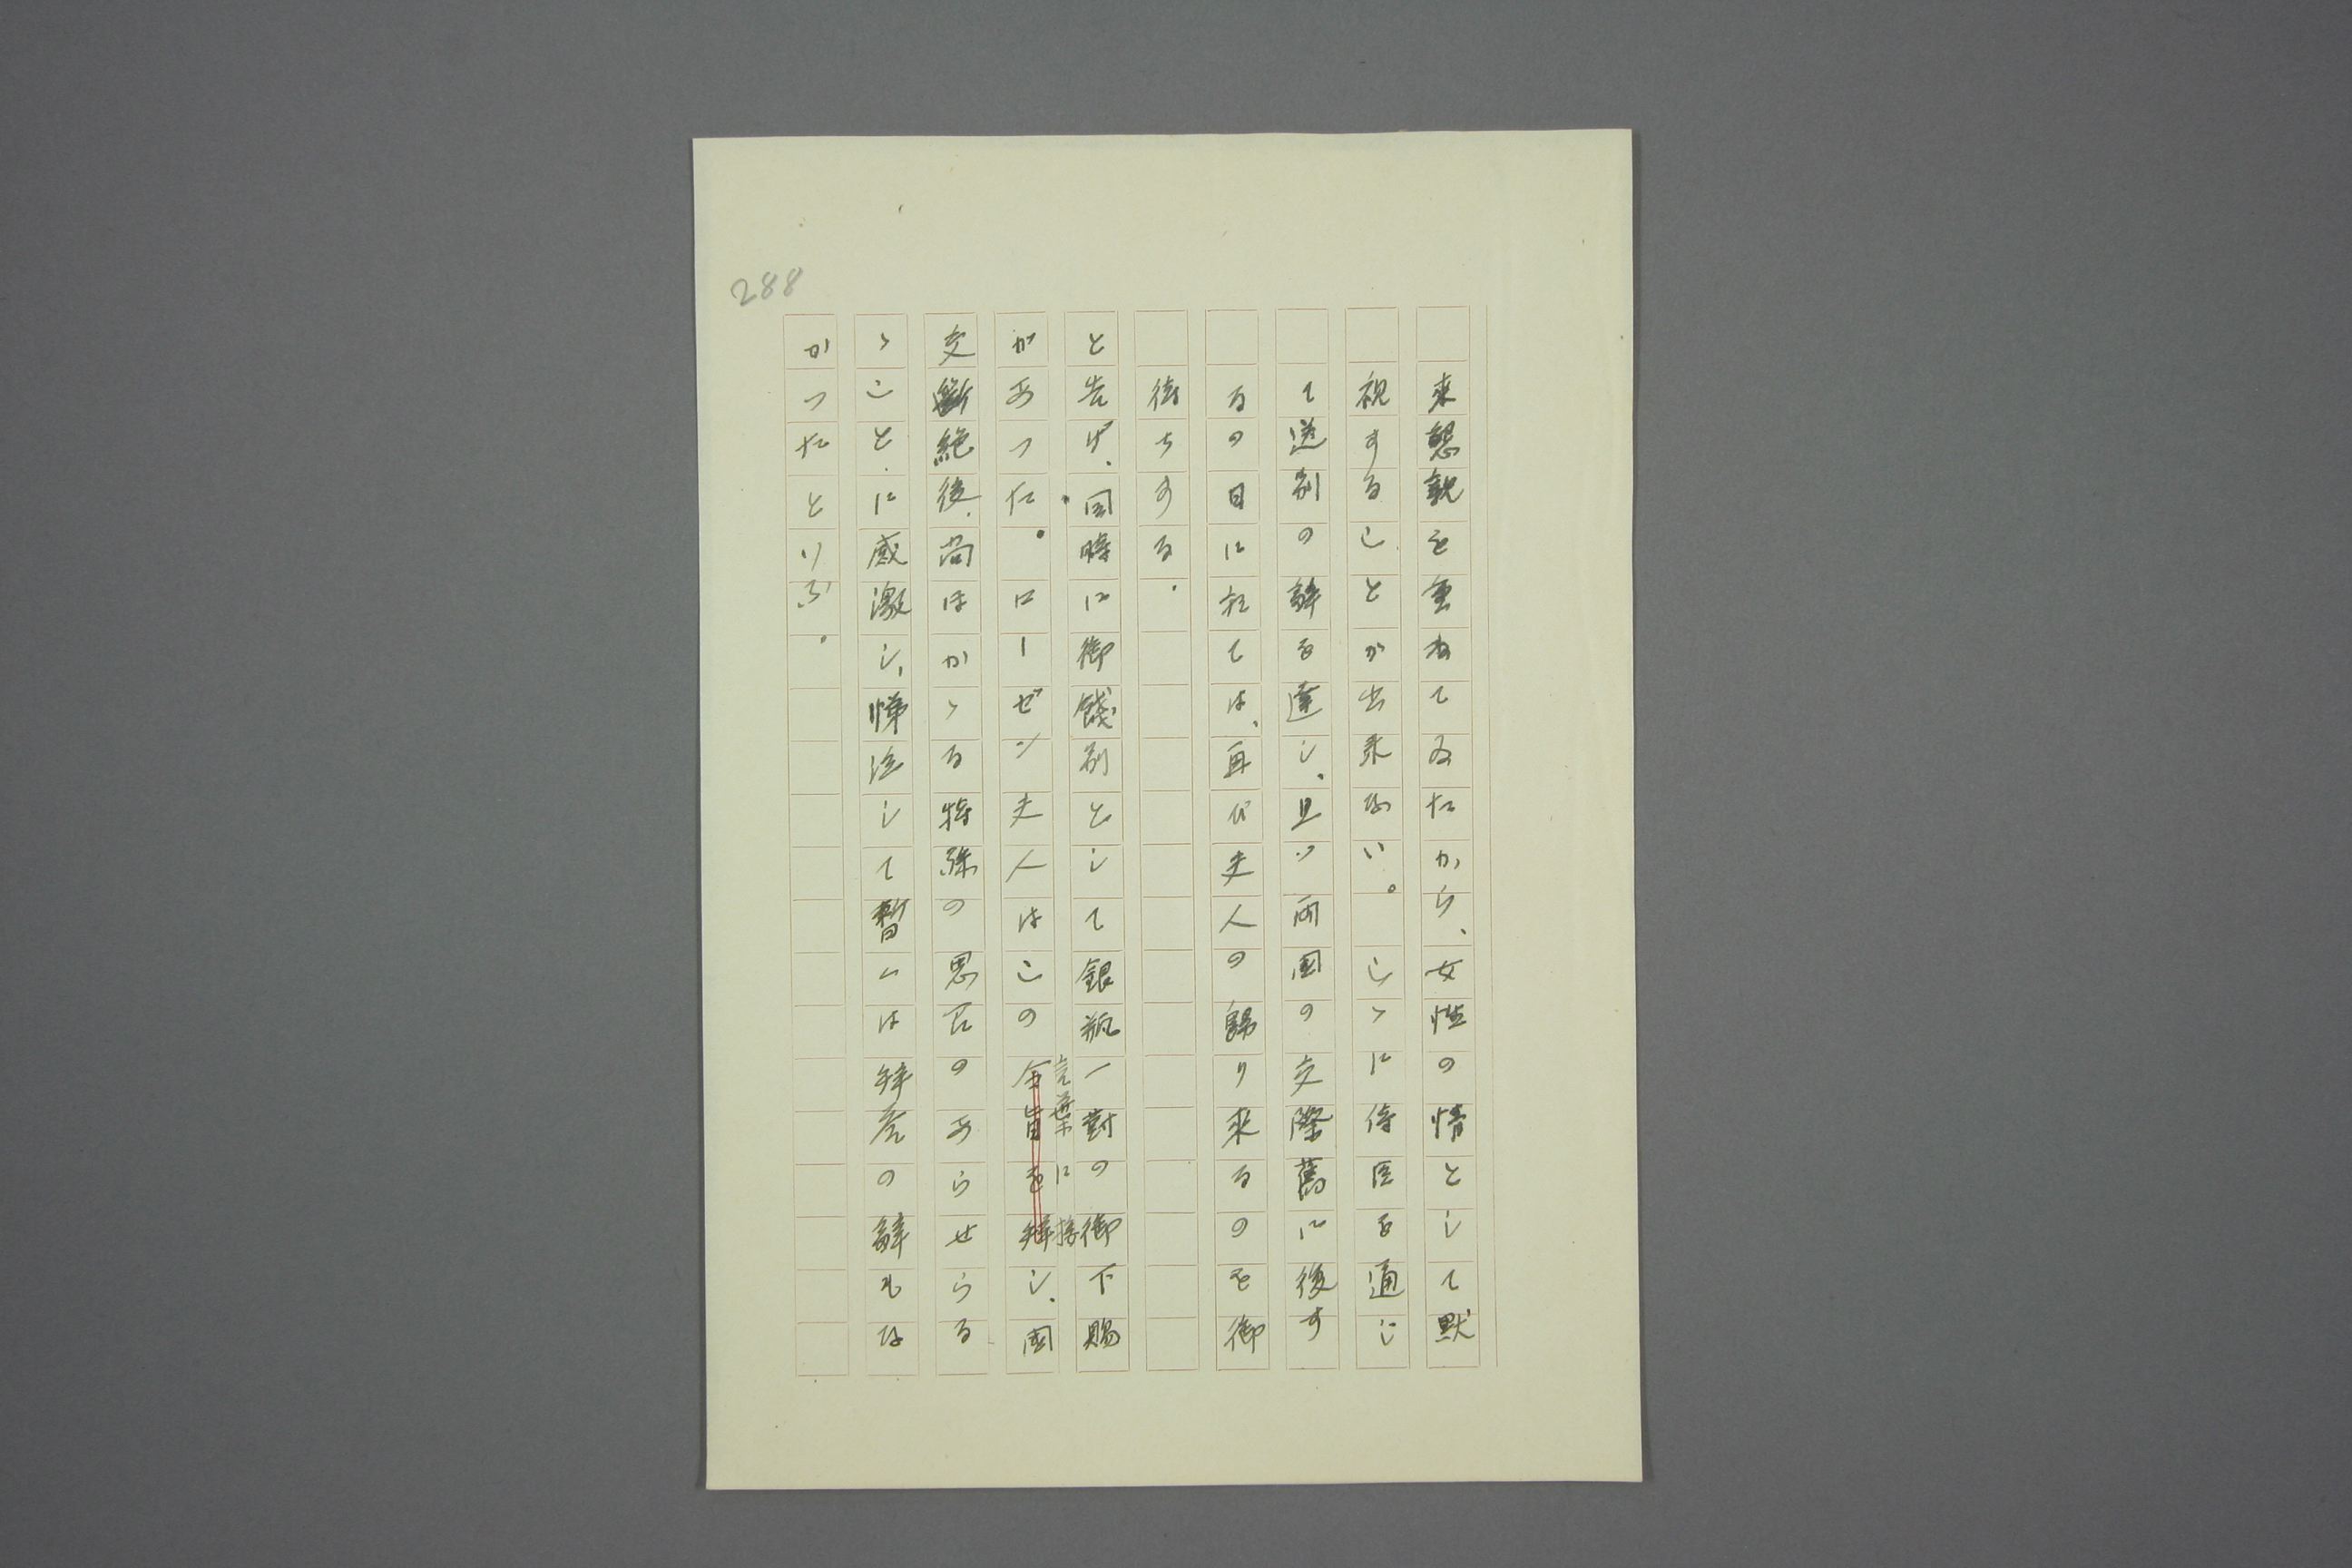 288
来懇親を重ねてゐたから、女性の情として黙
視することが出来ない。こゝに侍医を通じ
て送別の辞を達し、且ツ両国の交際舊に復す
るの日に於ては、再び夫人の歸り来るのを御
待ちする。
と告げ、同時に御餞別として銀瓶一對の御下賜
があつた。ローゼン夫人はこの令旨を拜し、國
言葉に接
交断絶後、尚ほかゝる特殊の思召のあらせらる
ゝことに感激し、悌泣して暫くは拜答の辭もな
かつたといふ。